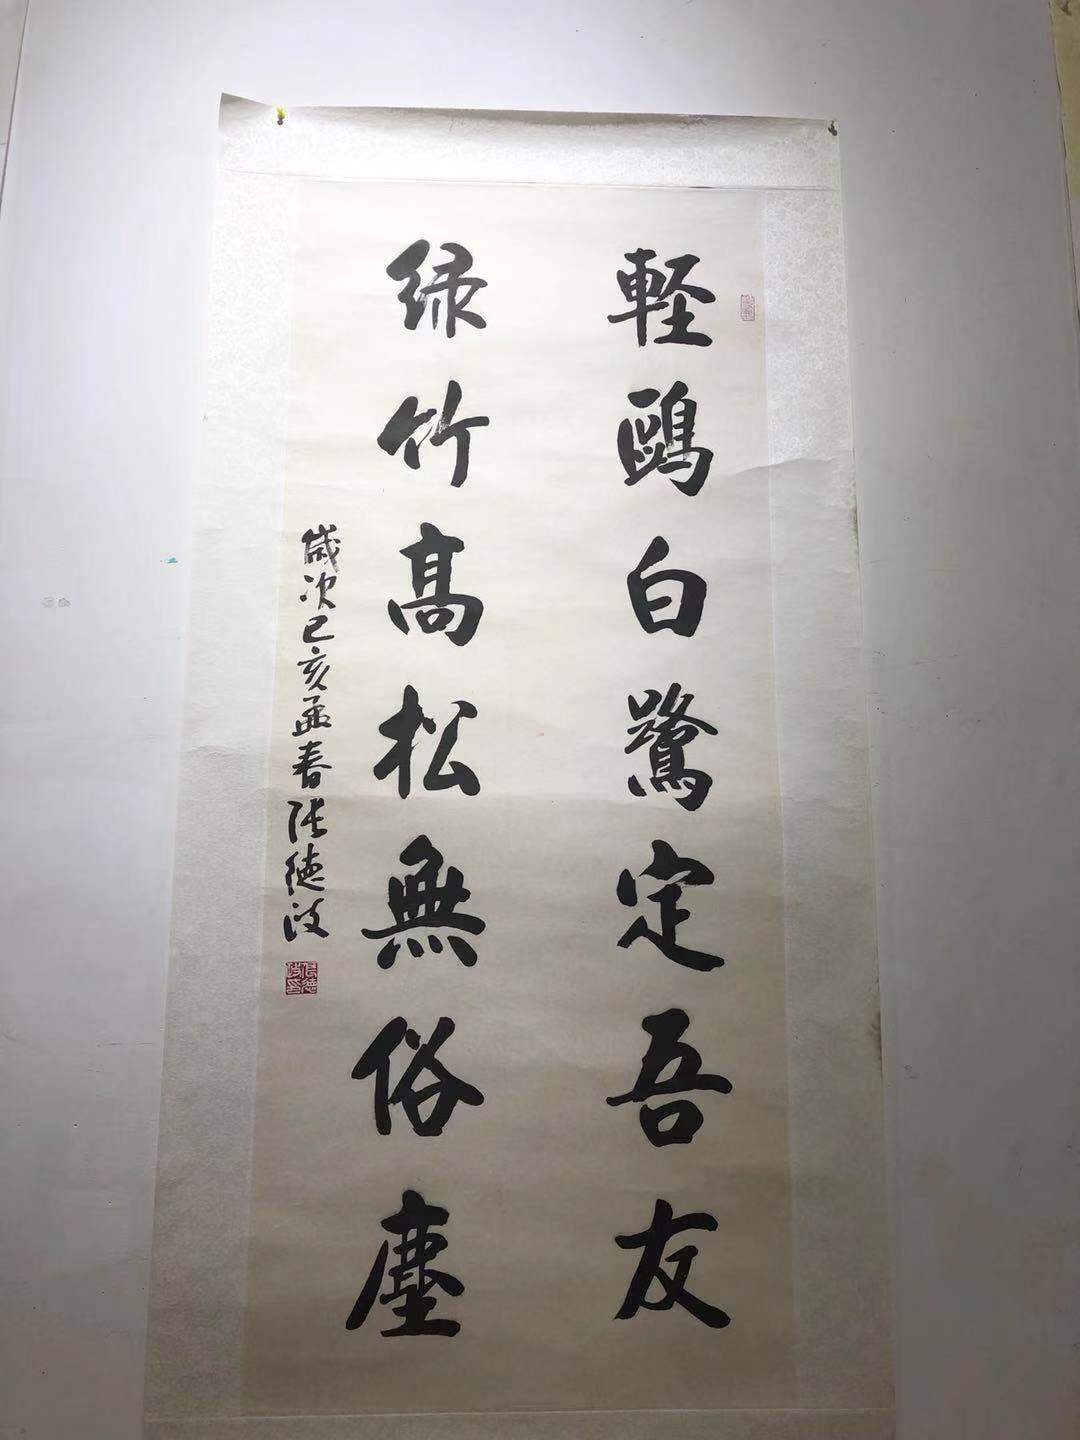 軽鷗白鷺定吾友
绿竹髙松無俗塵
歲次己亥孟春張德波